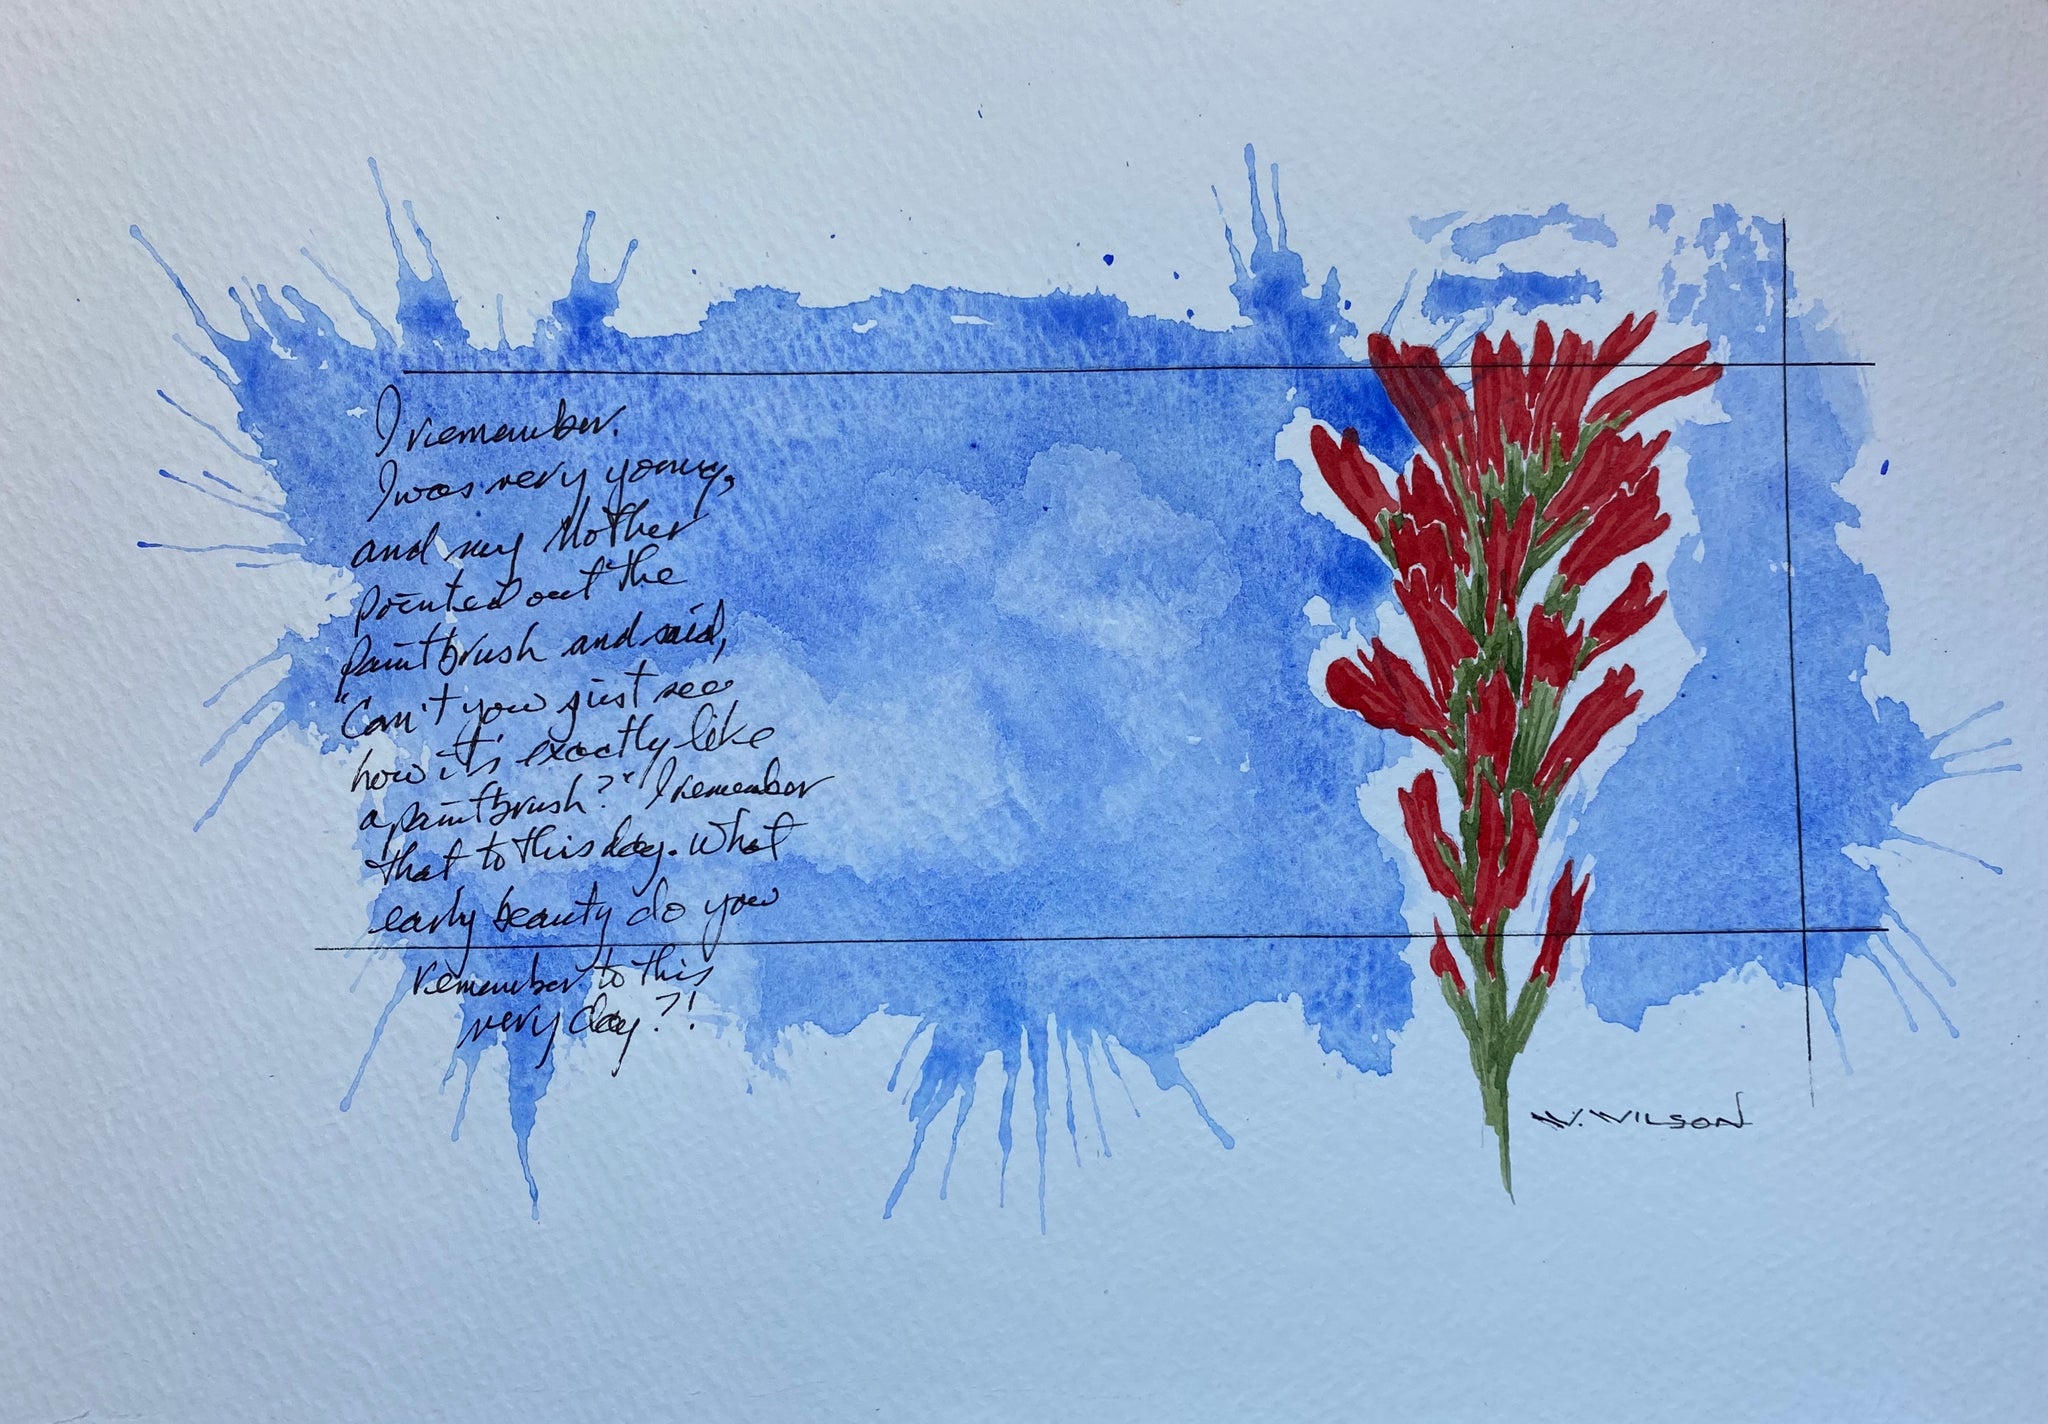 I remember.
I was very young,
and my Mother
pointed out the
paintbrush and said,
"Can't you just see
how it's exactly like
a paintbrush?" I remember
that to this day. What
early beauty do you
remember to this
very day?!
W. WILSON